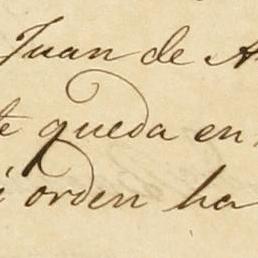 Juan de A
te queda en
i orden ha